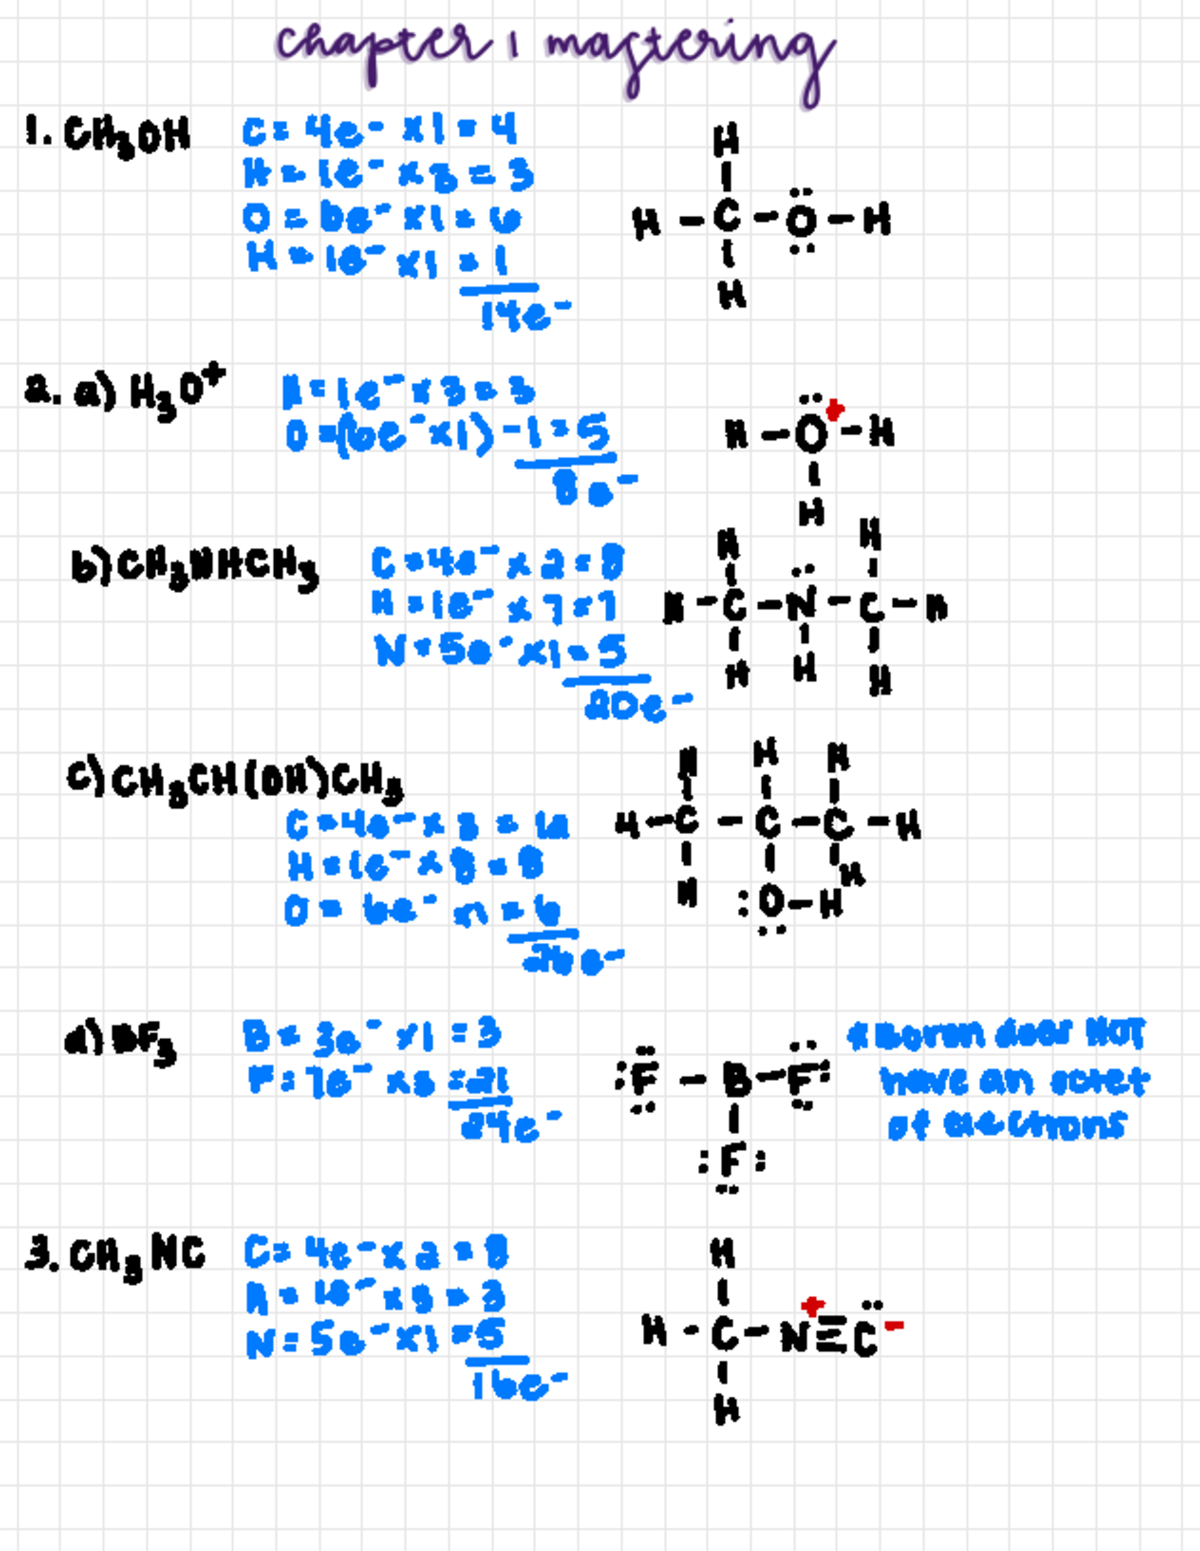 chapter 1 mastering
1. CH₃OH
C = 4e⁻ x1 = 4
H = 1e⁻ x3 = 3
O = 6e⁻ x1 = 6
H = 1e⁻ x1 = 1
14e⁻
H
H - C - O - H
H
2. a) H₃O⁺
H = 1e⁻ x 3 = 3
O = (6e⁻ x1) - 1 = 5
8e⁻
H - O⁺ - H
H
b) CH₃NHCH₃
C = 4e⁻ x 2 = 8
H = 1e⁻ x 7 = 7
N = 5e⁻ x1 = 5
20e⁻
H H
H - C - N - C - H
H H H
c) CH₃CH(OH)CH₃
C = 4e⁻ x 3 = 12
H = 1e⁻ x 8 = 8
O = 6e⁻ x1 = 6
26e⁻
H H H
H - C - C - C - H
H H
:O - H
d) BF₃
B = 3e⁻ x1 = 3
F = 7e⁻ x3 = 21
24e⁻
:F - B - F:
:F:
* Boron does NOT
have an octet
of electrons
3. CH₃NC
C = 4e⁻ x 2 = 8
H = 1e⁻ x 3 = 3
N = 5e⁻ x1 = 5
16e⁻
H
H - C - N⁺ ≡ C⁻
H